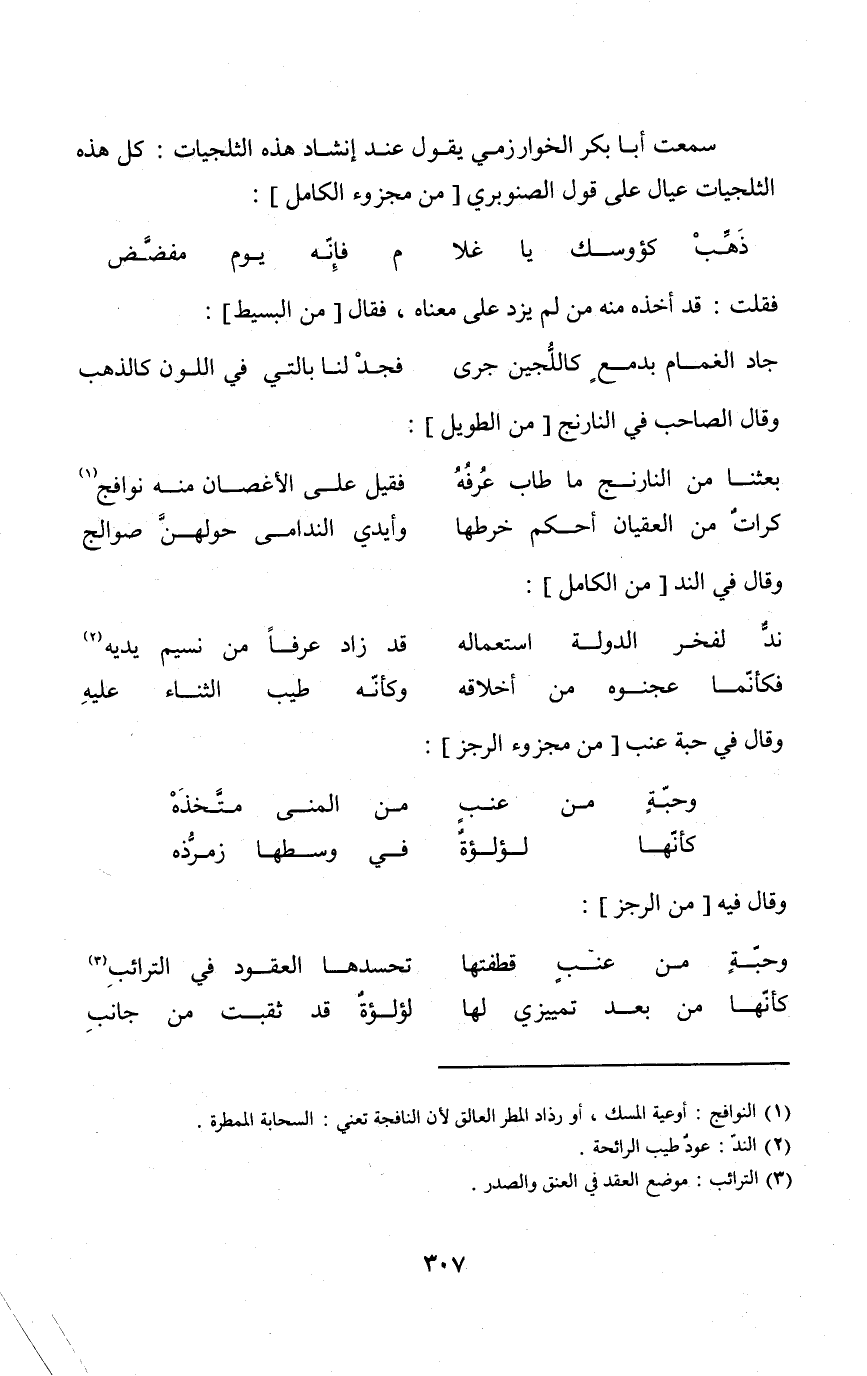 سمعت أبا بكر الخوارزمي يقول عند إنشاد هذه الثلجيات : كل هذه
الثلجيات عيال على قول الصنوبري [ من مجزوء الكامل ] :
ذَهِّبْ كؤوسك يا غلا م فإنّه يوم مفضَّض
فقلت : قد أخذه منه من لم يزد على معناه ، فقال [ من البسيط ] :
جاد الغمام بدمعٍ كاللُّجين جرى فجدْ لنا بالتي في اللون كالذهب
وقال الصاحب في النارنج [ من الطويل ] :
بعثنا من النارنج ما طاب عُرفُهُ فقيل على الأغصان منه نوافج(١)
كراتٌ من العقيان أحكم خرطها وأيدي الندامى حولهنَّ صوالج
وقال في الند [ من الكامل ] :
ندٌّ لفخر الدولة استعماله قد زاد عرفاً من نسيم يديه(٢)
فكأنّما عجنوه من أخلاقه وكأنّه طيب الثناء عليهِ
وقال في حبة عنب [ من مجزوء الرجز ] :
وحبّةٍ من عنبٍ من المنى متَّخذَهْ
كأنّها لؤلؤةٌ في وسطها زمرُّذه
وقال فيه [ من الرجز ] :
وحبّةٍ من عنبٍ قطفتها تحسدها العقود في الترائبِ(٣)
كأنّها من بعد تمييزي لها لؤلؤةٌ قد ثقبت من جانبِ
(١) النوافج : أوعية المسك ، أو رذاذ المطر العالق لأن النافجة تعني : السحابة الممطرة .
(٢) الندّ : عودٌ طيب الرائحة .
(٣) الترائب : موضع العقد في العنق والصدر .
٣٠٧